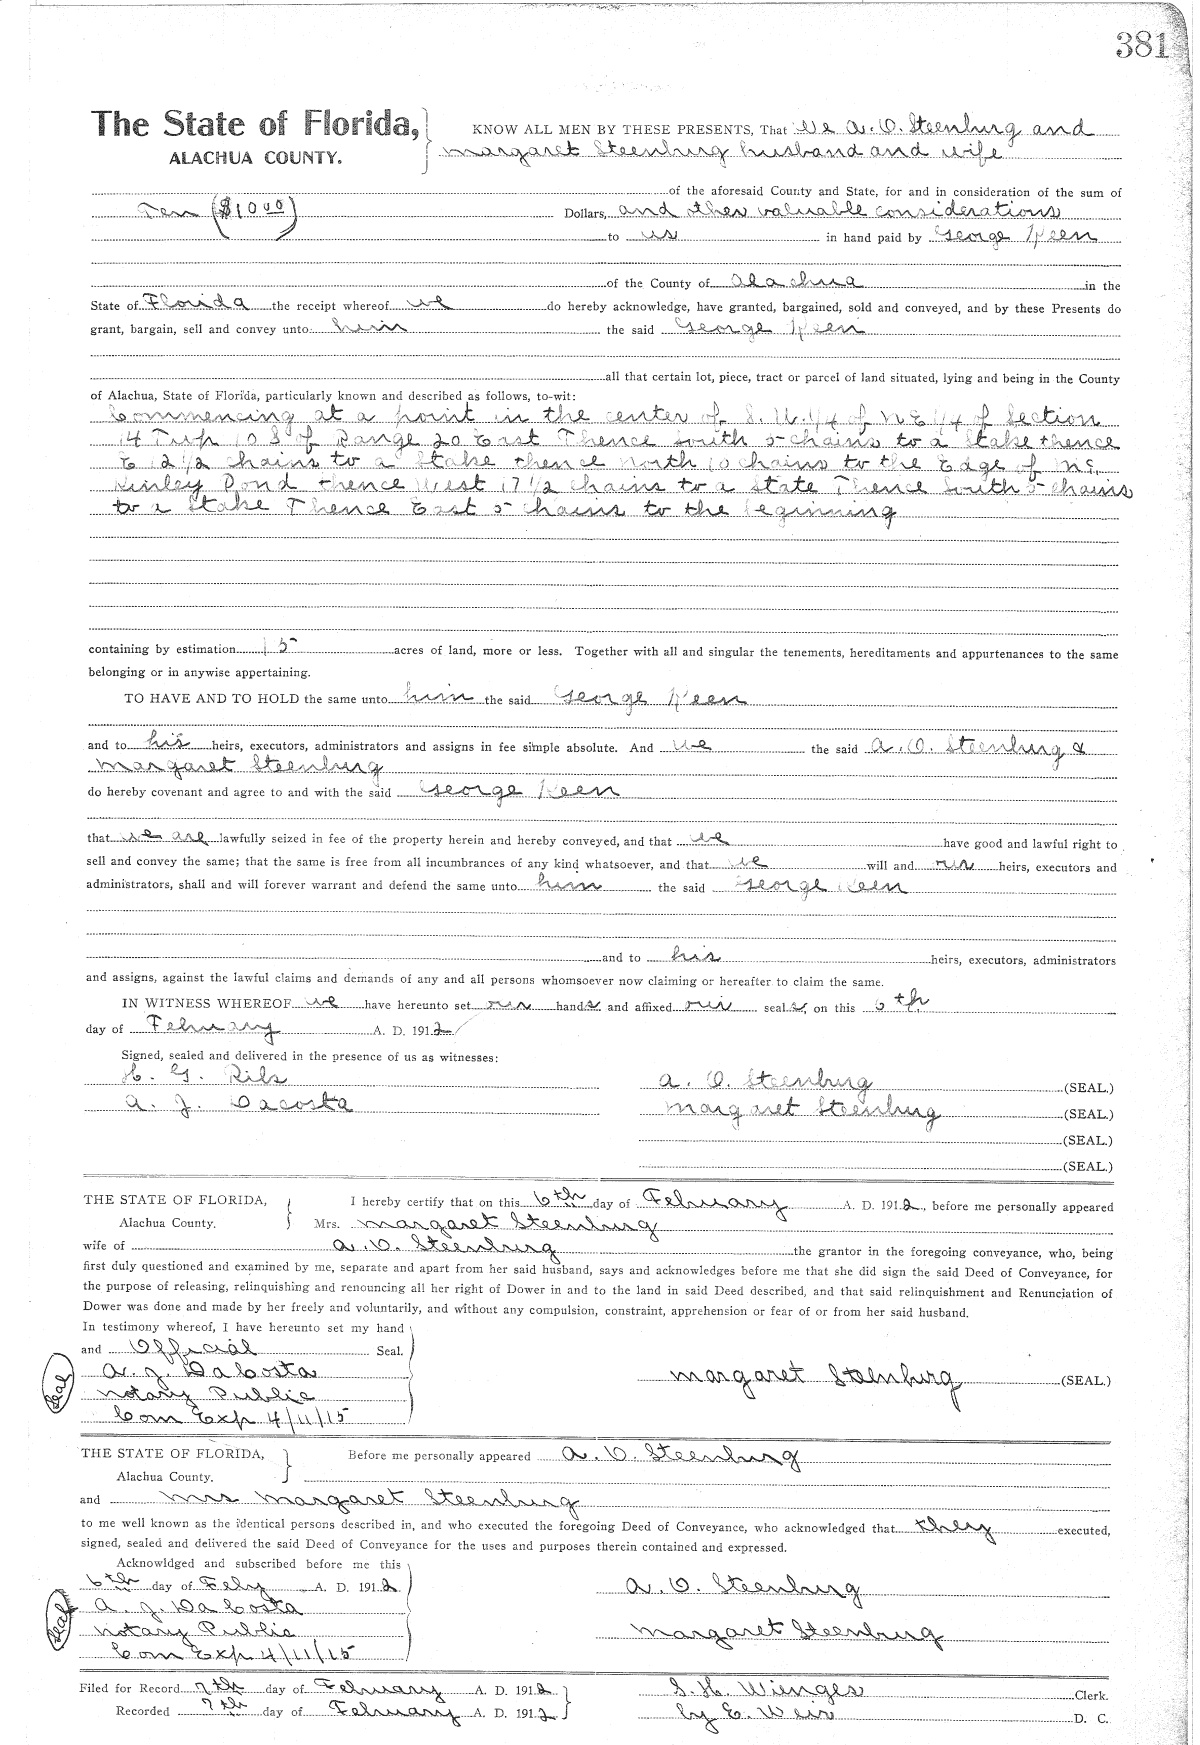 381
The State of Florida, KNOW ALL MEN BY THESE PRESENTS, That we A. O. Steenburg and
ALACHUA COUNTY. Margaret Steenburg husband and wife
of the aforesaid County and State, for and in consideration of the sum of
Ten ($10 00) Dollars, and other valuable considerations
to us in hand paid by George Keen
of the County of Alachua in the
State of Florida the receipt whereof we do hereby acknowledge, have granted, bargained, sold and conveyed, and by these Presents do
grant, bargain, sell and convey unto him the said George Keen
all that certain lot, piece, tract or parcel of land situated, lying and being in the County
of Alachua, State of Florida, particularly known and described as follows, to-wit:
Commencing at a point in the center of S. W. 1/4 of N E 1/4 of Section
14 Twp 10 S of Range 20 East Thence South 5 chains to a Stake thence
E 12 1/2 chains to a Stake thence north 10 chains to the Edge of Mc
Kinley Pond thence West 17 1/2 chains to a State Thence South 5 chains
to a Stake Thence East 5 chains to the beginning
containing by estimation 15 acres of land, more or less. Together with all and singular the tenements, hereditaments and appurtenances to the same
belonging or in anywise appertaining.
TO HAVE AND TO HOLD the same unto him the said George Keen
and to his heirs, executors, administrators and assigns in fee simple absolute. And we the said A. O. Steenburg &
Margaret Steenburg
do hereby covenant and agree to and with the said George Keen
that we are lawfully seized in fee of the property herein and hereby conveyed, and that we have good and lawful right to
sell and convey the same; that the same is free from all incumbrances of any kind whatsoever, and that we will and our heirs, executors and
administrators, shall and will forever warrant and defend the same unto him the said George Keen
and to his heirs, executors, administrators
and assigns, against the lawful claims and demands of any and all persons whomsoever now claiming or hereafter to claim the same.
IN WITNESS WHEREOF we have hereunto set our hands and affixed our seals, on this 6th
day of February A. D. 1912
Signed, sealed and delivered in the presence of us as witnesses:
H. G. A. O. Steenburg (SEAL.)
A. J. Dacosta Margaret Steenburg (SEAL.)
(SEAL.)
(SEAL.)
THE STATE OF FLORIDA, I hereby certify that on this 6th day of February A. D. 1912, before me personally appeared
Alachua County. Mrs. Margaret Steenburg
wife of A. O. Steenburg the grantor in the foregoing conveyance, who, being
first duly questioned and examined by me, separate and apart from her said husband, says and acknowledges before me that she did sign the said Deed of Conveyance, for
the purpose of releasing, relinquishing and renouncing all her right of Dower in and to the land in said Deed described, and that said relinquishment and Renunciation of
Dower was done and made by her freely and voluntarily, and without any compulsion, constraint, apprehension or fear of or from her said husband.
In testimony whereof, I have hereunto set my hand
and Official Seal.
Seal A. J. DaCosta Margaret Steenburg (SEAL.)
Notary Public
Com Exp 4/11/15
THE STATE OF FLORIDA, Before me personally appeared A. O. Steenburg
Alachua County.
and Mrs Margaret Steenburg
to me well known as the identical persons described in, and who executed the foregoing Deed of Conveyance, who acknowledged that they executed,
signed, sealed and delivered the said Deed of Conveyance for the uses and purposes therein contained and expressed.
Acknowldged and subscribed before me this
6th day of Feby A. D. 1912 A. O. Steenburg
Seal A. J. DaCosta
Notary Public Margaret Steenburg
Com Exp 4/11/15
Filed for Record 7th day of February A. D. 1912 S. H. Wienges Clerk.
Recorded 7th day of February A. D. 1912 by E. Weir D. C.